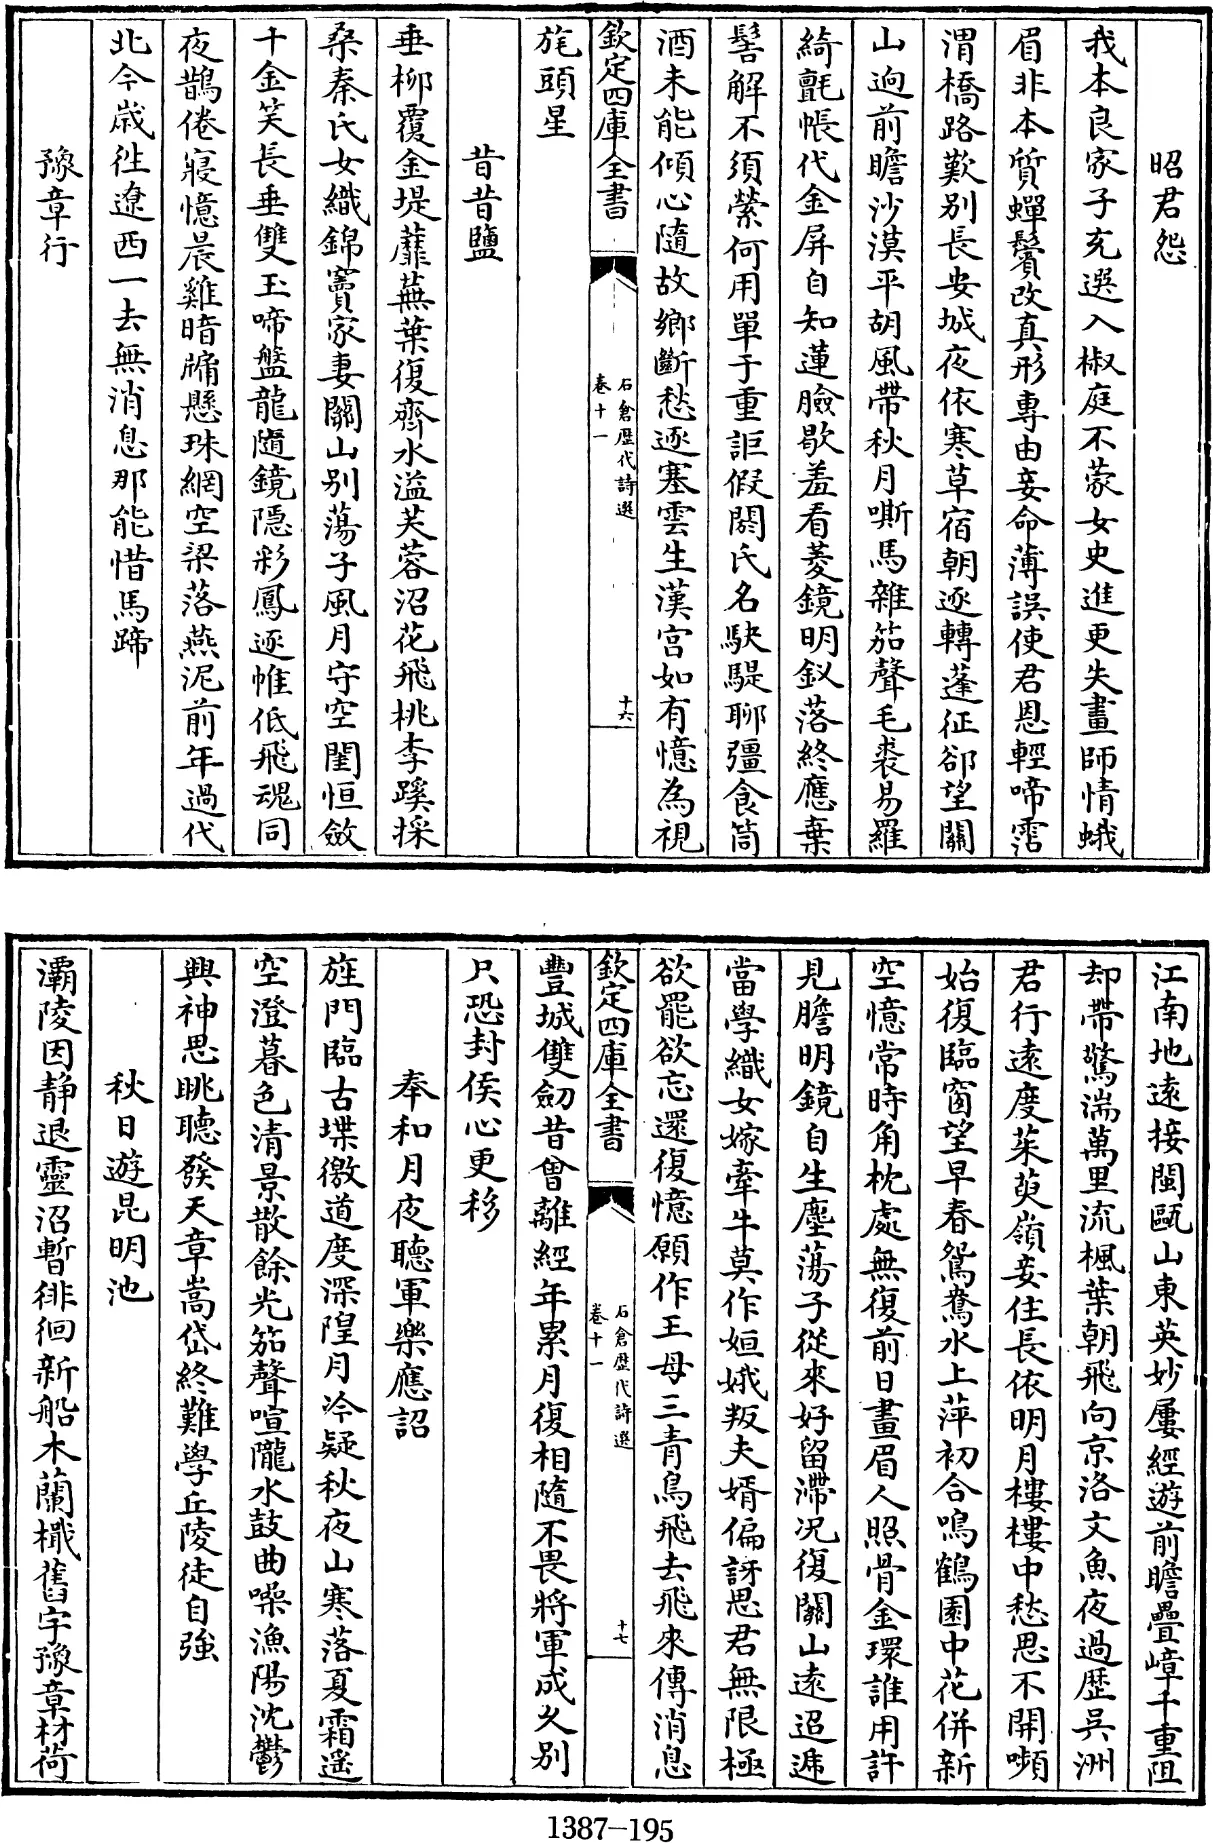 昭君怨
我本良家子充選入椒庭不蒙女史進更失畫師情蛾
眉非本質蟬鬢改真形專由妾命薄誤使君恩輕啼霑
渭橋路歎别長安城夜依寒草宿朝逐轉蓬征郤望關
山逈前瞻沙漠平胡風帶秋月嘶馬雜笳聲毛裘易羅
綺氈帳代金屏自知蓮臉歇羞看菱鏡明釵落終應棄
髻解不須縈何用單于重詎假閼氏名駃騠聊彊食筒
酒未能傾心隨故鄉斷愁逐塞雲生漢宫如有憶為視
旄頭星
欽定四庫全書
石倉歴代詩選
卷十一
十六
昔昔鹽
垂柳覆金堤蘼蕪葉復齊水溢芙蓉沼花飛桃李蹊採
桑秦氏女織錦竇家妻關山别蕩子風月守空閨恒斂
千金笑長垂雙玉啼盤龍隨鏡隱彩鳳逐帷低飛魂同
夜鵲倦寢憶晨雞暗牖懸珠網空梁落燕泥前年過代
北今歳徃遼西一去無消息那能惜馬蹄
豫章行
江南地逺接閩甌山東英妙屢經遊前瞻疊嶂千重阻
却帶驚湍萬里流楓葉朝飛向京洛文魚夜過歴吳洲
君行逺度茱萸嶺妾住長依明月樓樓中愁思不開嚬
始復臨窗望早春鴛鴦水上萍初合鳴鶴園中花併新
空憶常時角枕處無復前日畫眉人照骨金環誰用許
見膽明鏡自生塵蕩子從來好留滯况復關山逺迢遞
當學織女嫁牽牛莫作姮娥叛夫婿偏訝思君無限極
欲罷欲忘還復憶願作王母三青鳥飛去飛來傳消息
欽定四庫全書
石倉歴代詩選
卷十一
十七
豐城雙劒昔曾離經年累月復相隨不畏將軍成乆别
只恐封侯心更移
奉和月夜聽軍樂應詔
旌門臨古堞徼道度深隍月冷疑秋夜山寒落夏霜遥
空澄暮色清景散餘光笳聲喧隴水鼓曲噪漁陽沈鬱
興神思眺聽發天章嵩岱終難學丘陵徒自強
秋日遊昆明池
灞陵因靜退靈沼暫徘徊新船木蘭檝舊宇豫章材荷
1387-195